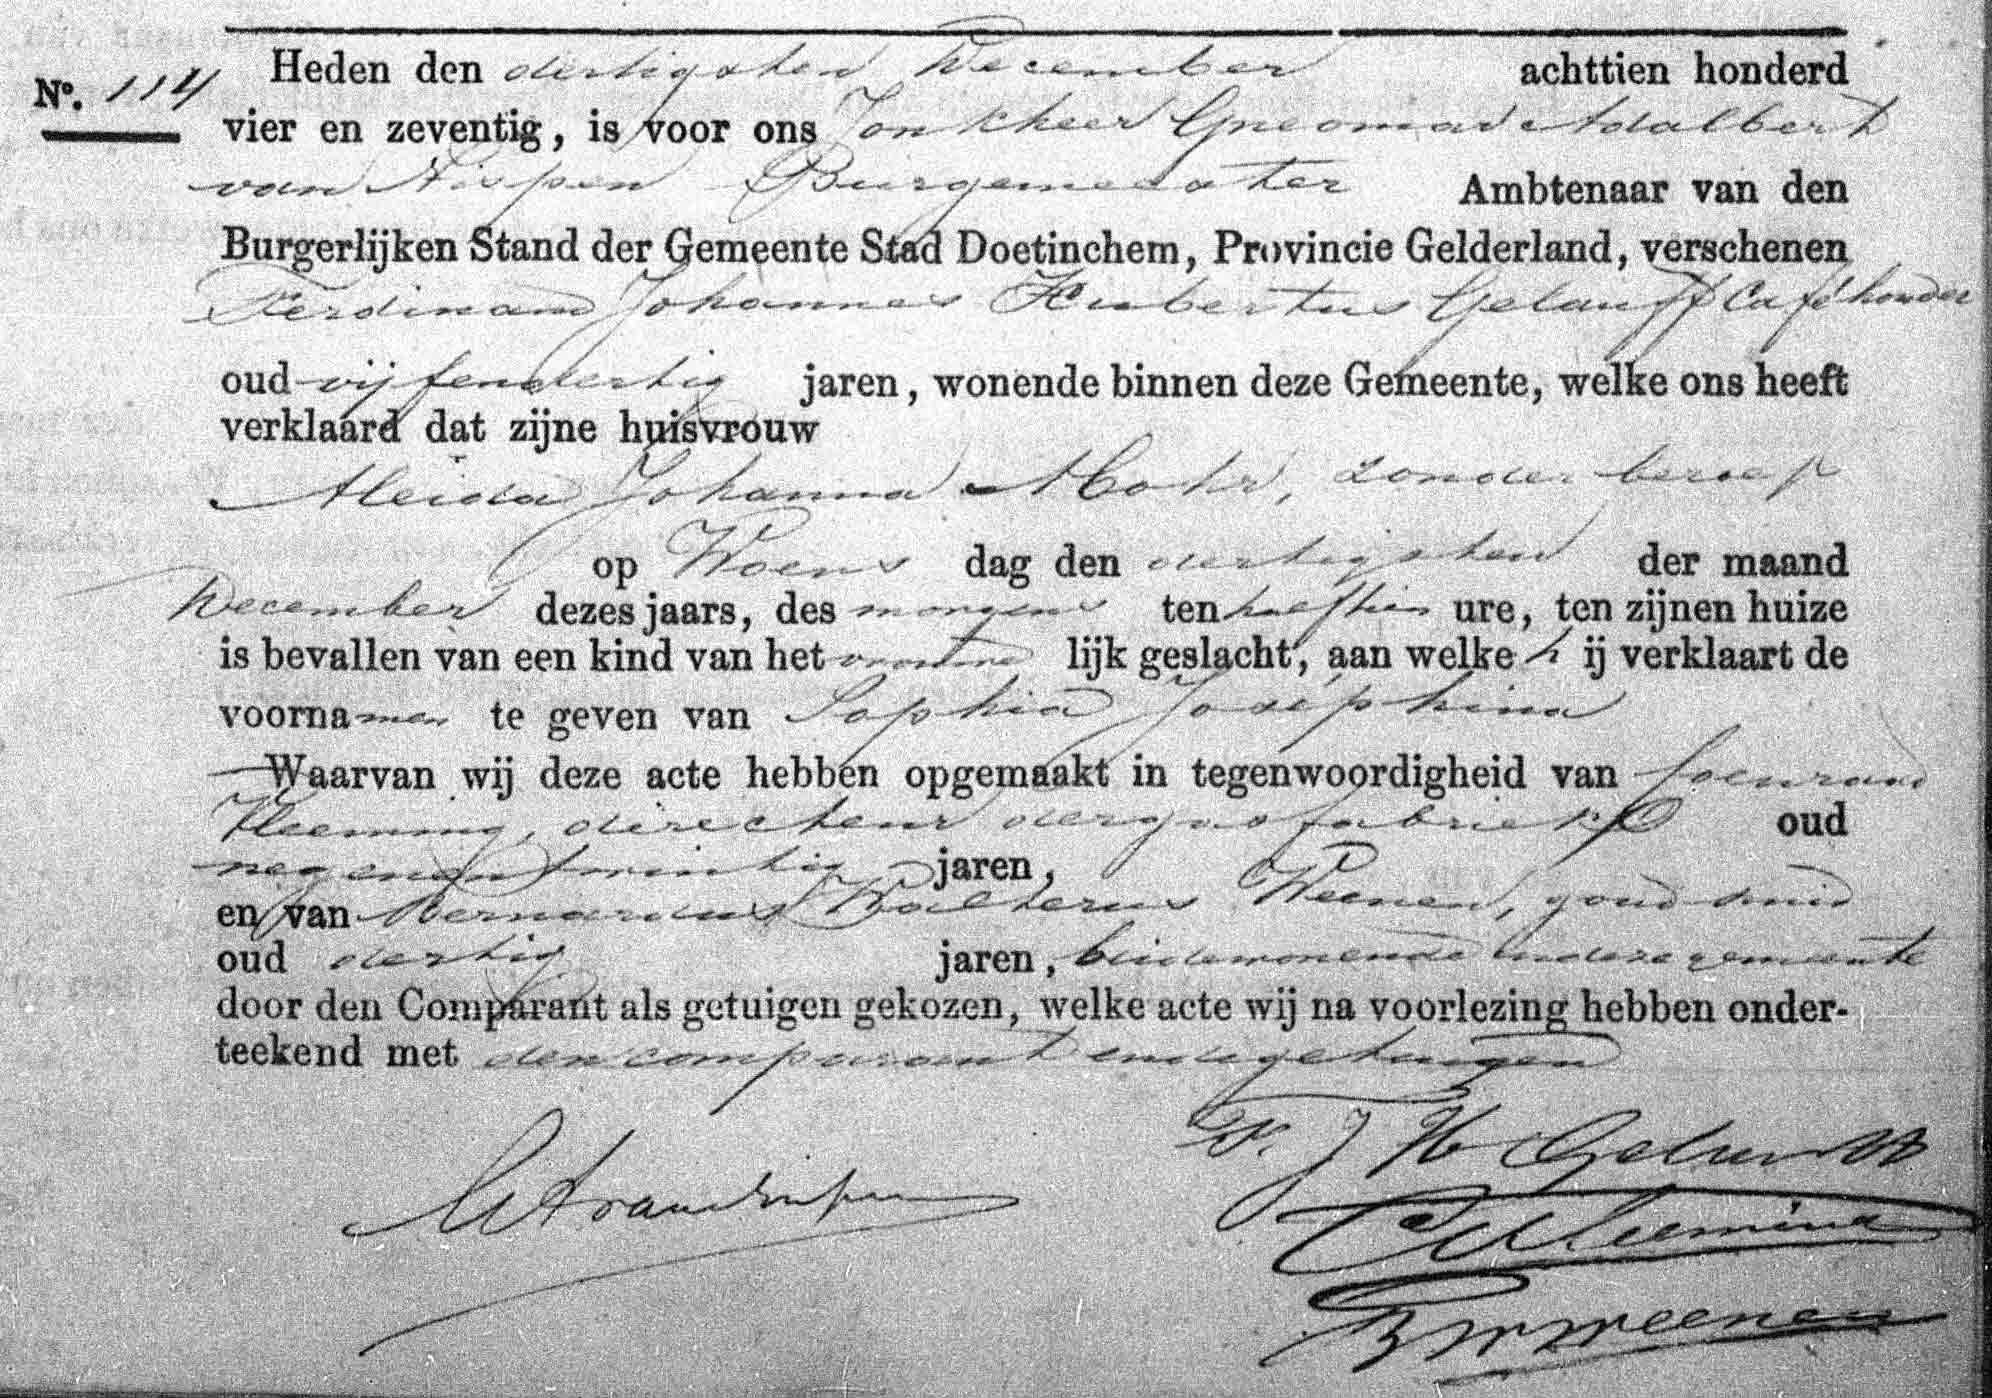 Heden den dertigsten December achttien honderd
No. 114
vier en zeventig, is voor ons Jonkheer Gneomar Adalbert
van Nispen Burgemeester Ambtenaar van den
Burgerlijken Stand der Gemeente Stad Doetinchem, Provincie Gelderland, verschenen
Ferdinand Johannes Hubertus Gelauff Caféhouder
oud vijfendertig jaren, wonende binnen deze Gemeente, welke ons heeft
verklaard dat zijne huisvrouw
Aleida Johanna Mohr, zonder beroep
op Woens dag den dertigsten der maand
December dezes jaars, des morgens ten half tien ure, ten zijnen huize
is bevallen van een kind van het vrouwe lijk geslacht, aan welke h ij verklaart de
voornamen te geven van Sophia Josephina
Waarvan wij deze acte hebben opgemaakt in tegenwoordigheid van Coenraad
Vleeming, directeur der gasfabriek oud
negenentwintig jaren,
en van Bernardus Walterus Weenen, goudsmid
oud dertig jaren, beide wonende in deze gemeente
door den Comparant als getuigen gekozen, welke acte wij na voorlezing hebben onder-
teekend met den comparant en de getuigen
F. J. H Gelauff
GA van Nispen
C Vleeming
B W Weenen